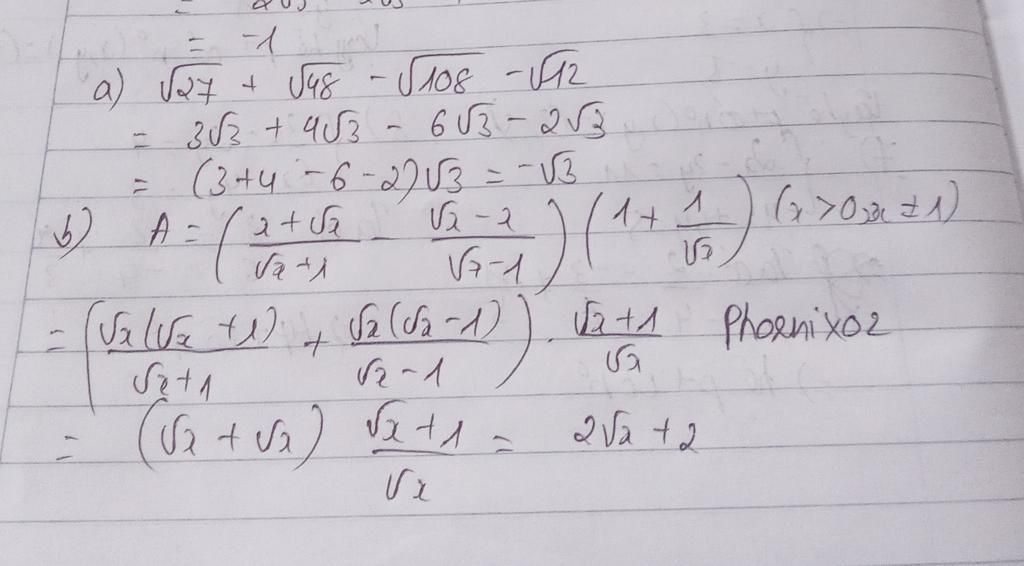 = -1
a) √27 + √48 - √108 - √12
= 3√3 + 4√3 - 6√3 - 2√3
= (3+4-6-2)√3 = -√3
b) A = ((x+√x)/(√x+1) - (√x-x)/(√x-1)) (1 + 1/√x) (x>0, x≠1)
= (√x(√x+1)/(√x+1) + √x(√x-1)/(√x-1)) . (√x+1)/√x Phoenix02
= (√x+√x) (√x+1)/√x = 2√x+2